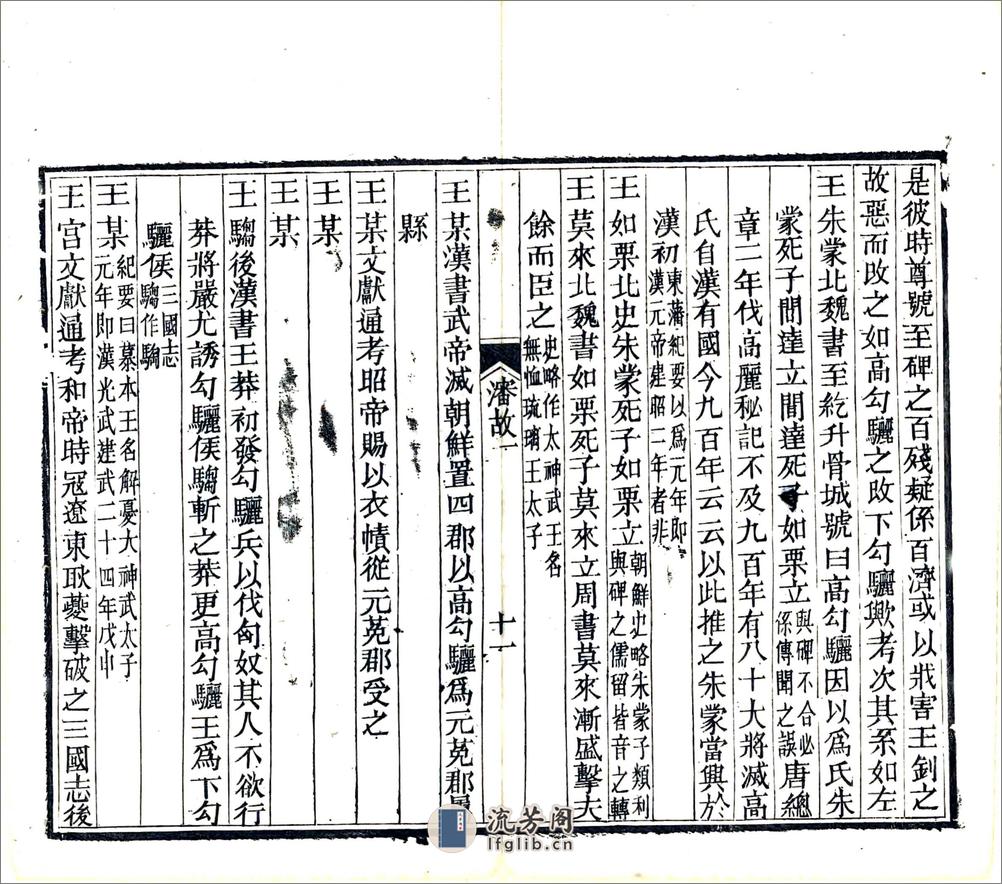 是彼時尊號至碑之百殘疑係百濟或以戕害王釗之
故惡而改之如高勾驪之改下勾驪歟考次其系如左
王朱蒙北魏書至紇升骨城號曰高勾驪因以爲氏朱
蒙死子閭達立閭達死子如栗立與碑不合必係傳聞之誤唐總
章二年伐高麗秘記不及九百年有八十大將滅高
氏自漢有國今九百年云云以此推之朱蒙當興於
漢初東藩紀要以爲元年卽漢元帝建昭二年者非
王如栗北史朱蒙死子如栗立朝鮮史略朱蒙子類利與碑之儒留皆音之轉
王莫來北魏書如栗死子莫來立周書莫來漸盛擊夫
餘而臣之史略作太神武王名無恤琉璃王太子
瀋故一
十一
王某漢書武帝滅朝鮮置四郡以高勾驪爲元菟郡屬
縣
王某文獻通考昭帝賜以衣幘從元菟郡受之
王某
王某
王騶後漢書王莽初發勾驪兵以伐匈奴其人不欲行
莽將嚴尤誘勾驪侯騶斬之莽更高勾驪王爲下勾
驪侯三國志騶作騊
王某紀要曰慕本王名解憂大神武太子元年卽漢光武建武二十四年戊申
王宮文獻通考和帝時寇遼東耿夔擊破之三國志後
流芳阁
lfglib.cn